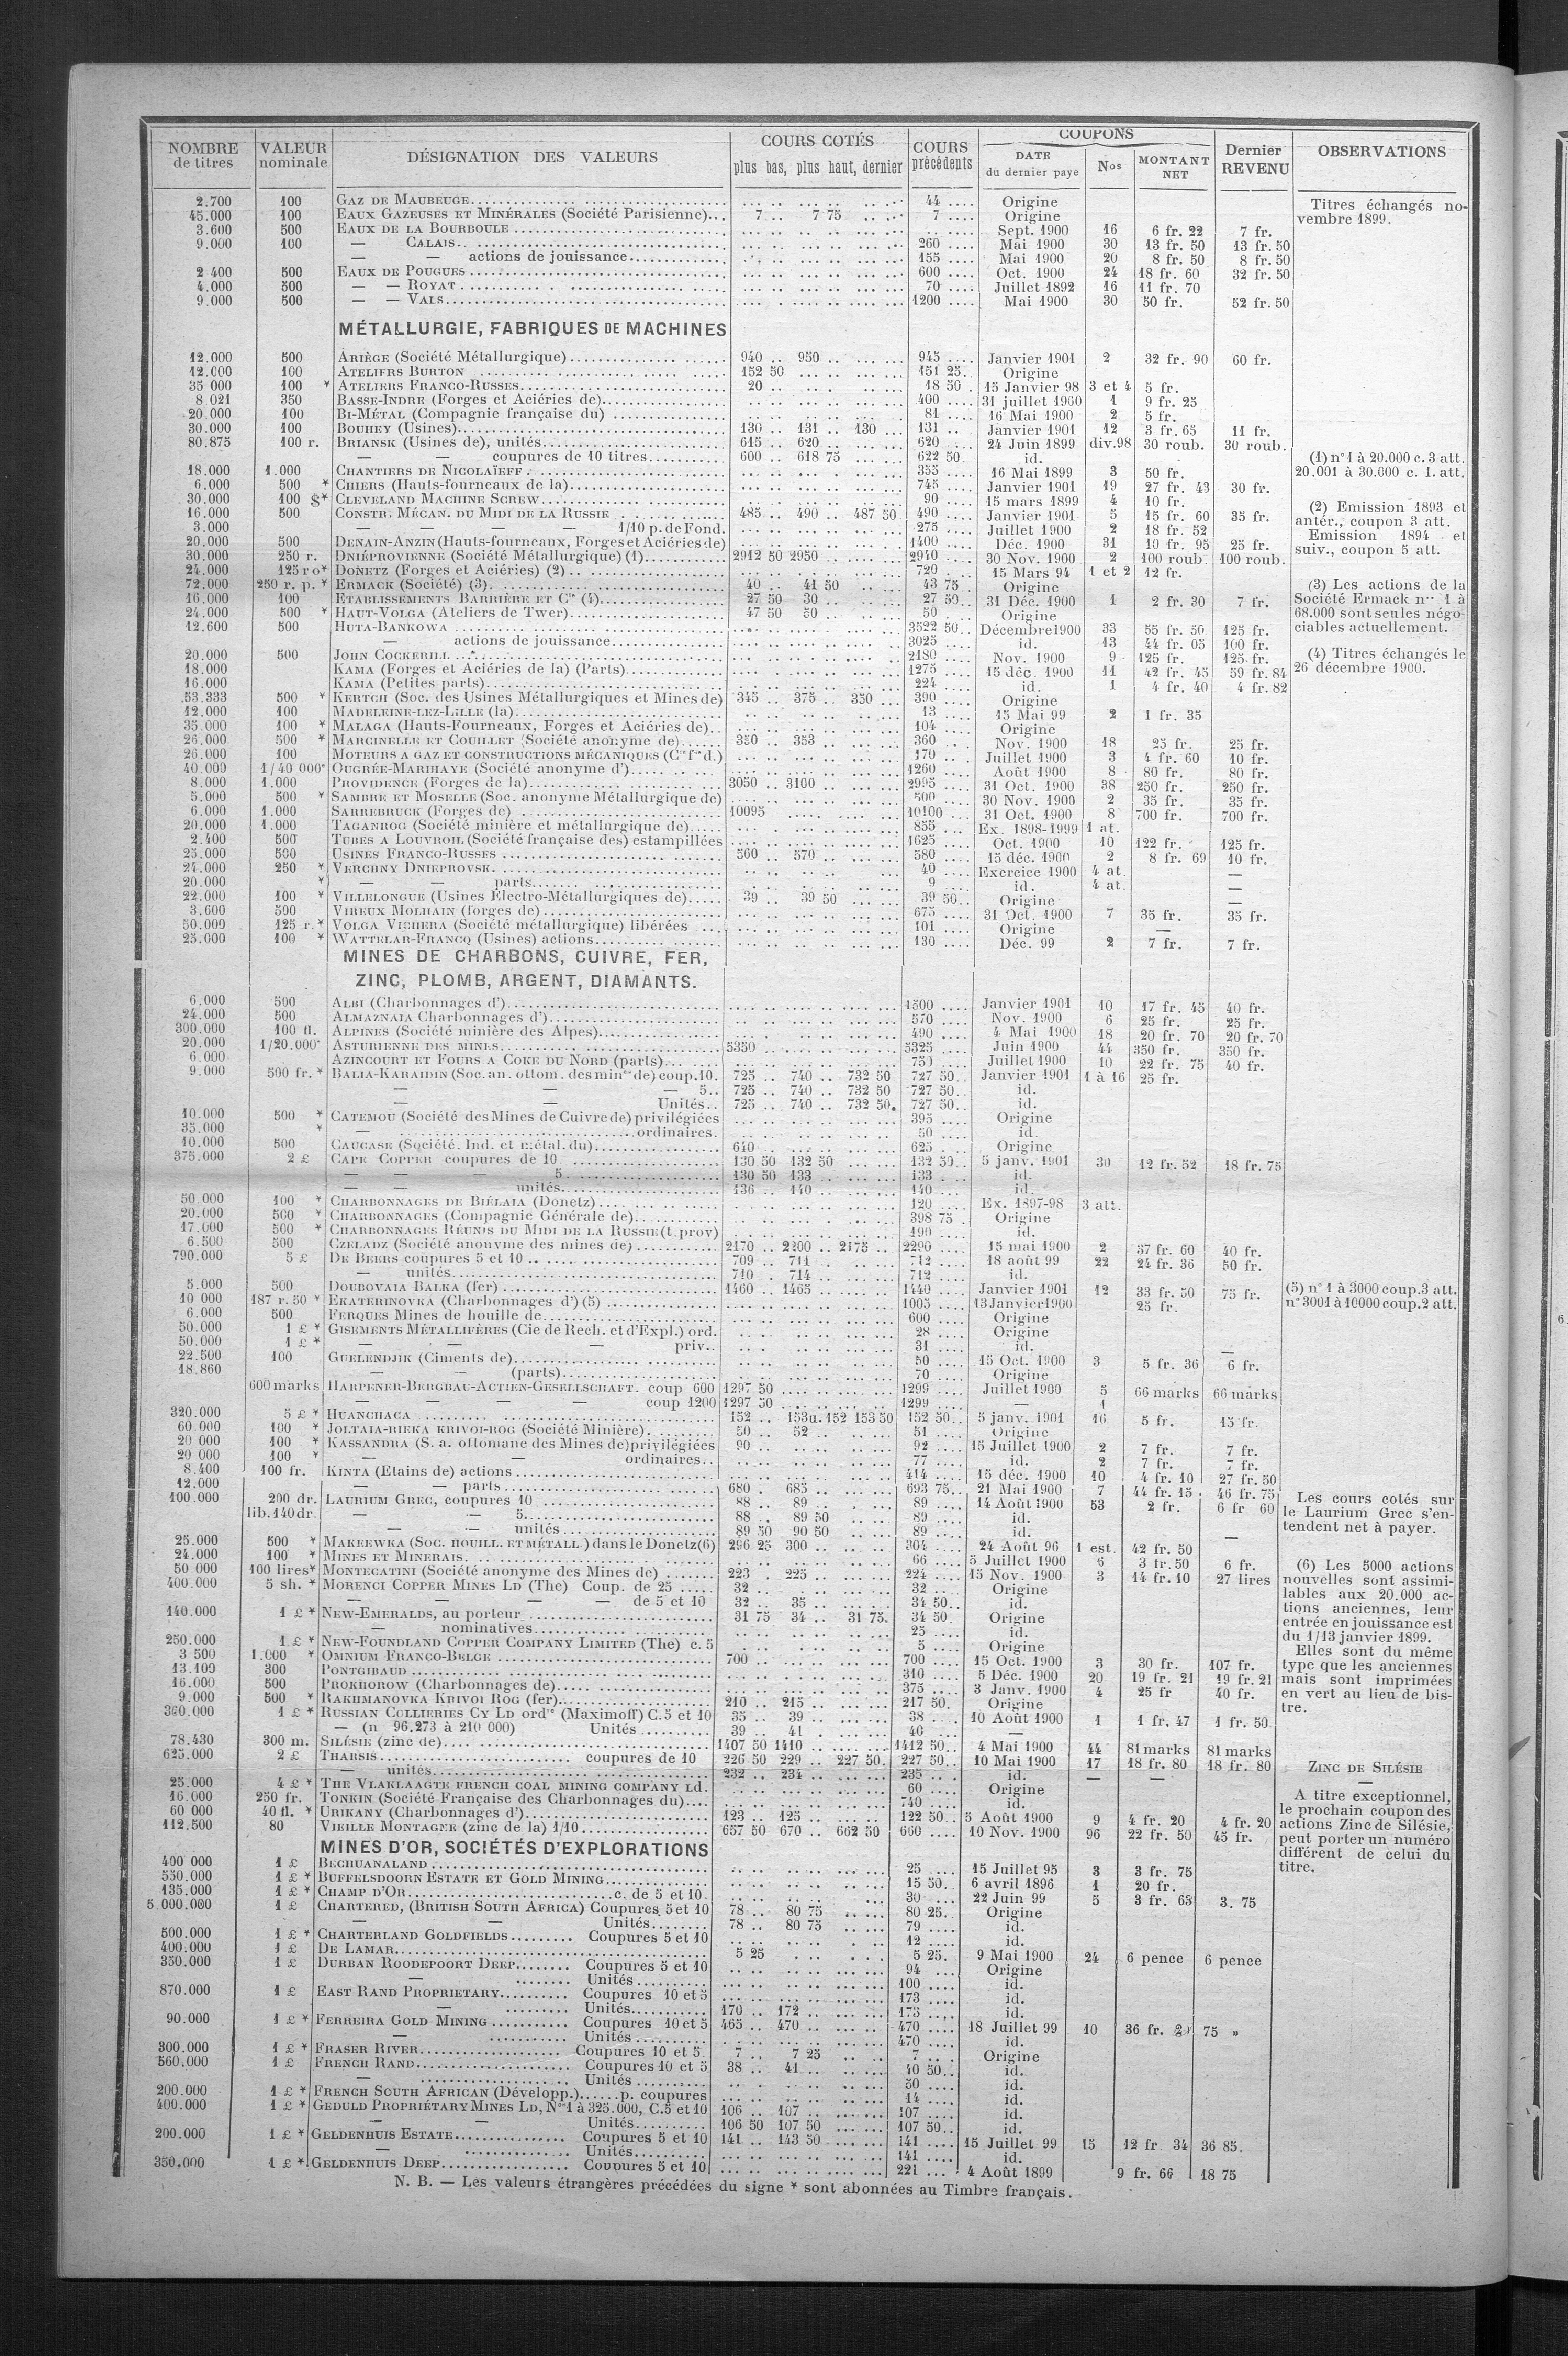 NOMBRE de titres | VALEUR nominale | DÉSIGNATION DES VALEURS | COURS COTÉS plus bas, plus haut, dernier | COURS précédents | COUPONS DATE du dernier paye | Nos | MONTANT NET | Dernier REVENU | OBSERVATIONS
2.700 100 GAZ DE MAUBEUGE 44 Origine
45.000 100 EAUX GAZEUSES ET MINÉRALES (Société Parisienne) 7 .. 7 75 7 Origine
3.600 500 EAUX DE LA BOURBOULE Sept. 1900 16 6 fr. 22 7 fr.
9.000 100 — CALAIS 260 Mai 1900 30 13 fr. 50 13 fr. 50
— — actions de jouissance 155 Mai 1900 20 8 fr. 50 8 fr. 50
2 400 500 EAUX DE POUGUES 600 Oct. 1900 24 18 fr. 60 32 fr. 50
4.000 500 — — ROYAT 70 Juillet 1892 16 11 fr. 70
9.000 500 — — VALS 1200 Mai 1900 30 50 fr. 52 fr. 50
Titres échangés no-
vembre 1899.
MÉTALLURGIE, FABRIQUES DE MACHINES
12.000 500 ARIÈGE (Société Métallurgique) 940 .. 950 945 Janvier 1901 2 32 fr. 90 60 fr.
12.000 100 ATELIERS BURTON 152 50 151 25 Origine
35 000 100 * ATELIERS FRANCO-RUSSES 20 18 50 15 Janvier 98 3 et 4 5 fr.
8.021 350 BASSE-INDRE (Forges et Aciéries de) 400 31 juillet 1900 1 9 fr. 25
20.000 100 BI-MÉTAL (Compagnie française du) 81 16 Mai 1900 2 5 fr.
30.000 100 BOUHEY (Usines) 130 .. 131 .. 130 131 Janvier 1901 12 3 fr. 65 11 fr.
80.875 100 r. BRIANSK (Usines de), unités 615 .. 620 620 24 Juin 1899 div.98 30 roub. 30 roub.
— — coupures de 10 titres 600 .. 618 75 622 50 id.
18.000 1.000 CHANTIERS DE NICOLAÏEFF 355 16 Mai 1899 3 50 fr.
6.000 500 * CHIERS (Hauts-fourneaux de la) 745 Janvier 1901 19 27 fr. 43 30 fr.
30.000 100 $* CLEVELAND MACHINE SCREW 90 15 mars 1899 4 10 fr.
16.000 500 CONSTR. MÉCAN. DU MIDI DE LA RUSSIE 485 .. 490 .. 487 50 490 Janvier 1901 5 15 fr. 60 35 fr.
3.000 — — — — 1/10 p. de Fond. 275 Juillet 1900 2 18 fr. 52
20.000 500 DENAIN-ANZIN (Hauts-fourneaux, Forges et Aciéries de) 1400 Déc. 1900 31 10 fr. 95 25 fr.
30.000 250 r. DNIÉPROVIENNE (Société Métallurgique) (1) 2912 50 2950 2940 30 Nov. 1900 2 100 roub. 100 roub.
24.000 125 r o* DONETZ (Forges et Aciéries) (2) 720 15 Mars 94 1 et 2 12 fr.
72.000 250 r. p. * ERMACK (Société) (3) 40 .. 41 50 43 75 Origine
16.000 100 ETABLISSEMENTS BARRIÈRE ET Cie (4) 27 50 30 27 50 31 Déc. 1900 1 2 fr. 30 7 fr.
24.000 500 * HAUT-VOLGA (Ateliers de Twer) 47 50 50 50 Origine
12.600 500 HUTA-BANKOWA 3522 50 Décembre 1900 33 55 fr. 50 125 fr.
— actions de jouissance 3025 id. 13 44 fr. 05 100 fr.
20.000 500 JOHN COCKERILL 2180 Nov. 1900 9 125 fr. 125 fr.
18.000 KAMA (Forges et Aciéries de la) (Parts) 1275 15 déc. 1900 11 42 fr. 45 59 fr. 84
16.000 KAMA (Petites parts) 224 id. 1 4 fr. 40 4 fr. 82
53.333 500 * KERTCH (Soc. des Usines Métallurgiques et Mines de) 345 .. 375 .. 350 390 Origine
12.000 100 MADELEINE-LEZ-LILLE (la) 13 15 Mai 99 2 1 fr. 35
35.000 100 * MALAGA (Hauts-Fourneaux, Forges et Aciéries de) 104 Origine
26.000 500 * MARCINELLE ET COUILLET (Société anonyme de) 350 .. 353 360 Nov. 1900 18 25 fr. 25 fr.
26.000 100 MOTEURS A GAZ ET CONSTRUCTIONS MÉCANIQUES 170 Juillet 1900 3 4 fr. 60 10 fr.
40.000 1/40 000e OUGRÉE-MARIHAYE (Société anonyme d') 1260 Août 1900 8 80 fr. 80 fr.
8.000 1.000 PROVIDENCE (Forges de la) 3050 .. 3100 2995 31 Oct. 1900 38 250 fr. 250 fr.
5.000 500 * SAMBRE ET MOSELLE (Soc. anonyme Métallurgique de) 500 30 Nov. 1900 2 35 fr. 35 fr.
6.000 1.000 SARREBRUCK (Forges de) 10095 10100 31 Oct. 1900 8 700 fr. 700 fr.
20.000 1.000 TAGANROG (Société minière et métallurgique de) 855 Ex. 1898-1999 1 at.
2.400 500 TUBES A LOUVROIL (Société française des) estampillées 1625 Oct. 1900 10 122 fr. 125 fr.
25.000 500 USINES FRANCO-RUSSES 560 .. 570 580 15 déc. 1900 2 8 fr. 69 10 fr.
24.000 250 * VERCHNY DNIEPROVSK 40 Exercice 1900 4 at. —
20.000 * — — parts 9 id. 4 at. —
22.000 100 * VILLELONGUE (Usines Électro-Métallurgiques de) 39 .. 39 50 39 50 Origine —
3.600 500 VIREUX MOLHAIN (forges de) 675 31 Oct. 1900 7 35 fr. 35 fr.
50.000 125 r. * VOLGA VICHERA (Société métallurgique) libérées 101 Origine —
25.000 100 * WATTELAR-FRANCQ (Usines) actions 130 Déc. 99 2 7 fr. 7 fr.
(1) n° 1 à 20.000 c. 3 att.
20.001 à 30.000 c. 1. att.
(2) Emission 1893 et
antér., coupon 3 att.
Emission 1894 et
suiv., coupon 5 att.
(3) Les actions de la
Société Ermack nos 1 à
68.000 sont seules négo-
ciables actuellement.
(4) Titres échangés le
26 décembre 1900.
MINES DE CHARBONS, CUIVRE, FER,
ZINC, PLOMB, ARGENT, DIAMANTS.
6.000 500 ALBI (Charbonnages d') 1500 Janvier 1901 10 17 fr. 45 40 fr.
24.000 500 ALMAZNAIA Charbonnages d') 570 Nov. 1900 6 25 fr. 25 fr.
300.000 100 fl. ALPINES (Société minière des Alpes) 490 4 Mai 1900 18 20 fr. 70 20 fr. 70
20.000 1/20.000e ASTURIENNE DES MINES 5350 5325 Juin 1900 44 350 fr. 350 fr.
6.000 AZINCOURT ET FOURS A COKE DU NORD (parts) 750 Juillet 1900 10 22 fr. 75 40 fr.
9.000 500 fr. * BALIA-KARAIDIN (Soc. an. ottom. des mines de) coup. 10. 725 .. 740 .. 732 50 727 50 Janvier 1901 1 à 16 25 fr.
— — — 5 725 .. 740 .. 732 50 727 50 id.
— — Unités 725 .. 740 .. 732 50 727 50 id.
10.000 500 * CATEMOU (Société des Mines de Cuivre de) privilégiées 395 Origine
35.000 * — ordinaires 50 id.
10.000 500 CAUCASE (Société. Ind. et métal. du) 610 625 Origine
375.000 2 £ CAPE COPPER coupures de 10 130 50 132 50 132 50 5 janv. 1901 30 12 fr. 52 18 fr. 75
— — 5 130 50 133 133 id.
— — unités 136 .. 140 140 id.
50.000 100 * CHARBONNAGES DE BIÉLAIA (Donetz) 120 Ex. 1897-98 3 att.
20.000 500 * CHARBONNAGES (Compagnie Générale de) 398 75 Origine
17.000 500 * CHARBONNAGES RÉUNIS DU MIDI DE LA RUSSIE (t. prov) 490 id.
6.500 500 CZELADZ (Société anonyme des mines de) 2170 .. 2200 .. 2175 2290 15 mai 1900 2 37 fr. 60 40 fr.
790.000 5 £ DE BEERS coupures 5 et 10 709 .. 711 712 18 août 99 22 24 fr. 36 50 fr.
— unités 710 . 714 712 id.
5.000 500 DOUBOVAIA BALKA (fer) 1460 .. 1465 1440 Janvier 1901 12 33 fr. 50 75 fr.
10 000 187 r. 50 * EKATERINOVKA (Charbonnages d') (5) 1005 13 Janvier 1900 25 fr.
6.000 500 FERQUES Mines de houille de 600 Origine
50.000 1 £ * GISEMENTS MÉTALLIFÈRES (Cie de Rech. et d'Expl.) ord. 28 Origine
50.000 1 £ * — — — priv. 31 id. —
22.500 100 GUELENDJIK (Ciments de) 50 15 Oct. 1900 3 5 fr. 36 6 fr.
18.860 — — (parts) 70 Origine
600 marks HARPENER-BERGBAU-ACTIEN-GESELLSCHAFT. coup 600 1297 50 1299 Juillet 1900 5 66 marks 66 marks
— — — — coup 1200 1297 50 1299 — 1
320.000 5 £ * HUANCHACA 152 .. 153 u. 152 153 50 152 50 5 janv. 1901 16 5 fr. 15 fr.
60.000 100 * JOLTAIA-RIEKA KRIVOI-ROG (Société Minière) 50 .. 52 51 Origine
20 000 100 * KASSANDRA (S. a. ottomane des Mines de) privilégiées 90 92 15 Juillet 1900 2 7 fr. 7 fr.
20 000 100 * — — ordinaires 77 id. 2 7 fr. 7 fr.
8.400 100 fr. KINTA (Etains de) actions 414 15 déc. 1900 10 4 fr. 10 27 fr. 50
12.000 — — parts 680 . 685 693 75 21 Mai 1900 7 44 fr. 15 46 fr. 75
100.000 200 dr. LAURIUM GREC, coupures 10 88 .. 89 89 14 Août 1900 53 2 fr. 6 fr 60
lib. 140 dr. — — 5 88 .. 89 50 89 id.
— — unités 89 50 90 50 89 id. —
25.000 500 * MAKEEWKA (Soc. HOUILL. ET MÉTALL) dans le Donetz (6) 296 25 300 304 24 Août 96 1 est. 42 fr. 50
24.000 100 * MINES ET MINERAIS 66 5 Juillet 1900 6 3 fr. 50 6 fr.
50 000 100 lires* MONTECATINI (Société anonyme des Mines de) 223 . 225 224 15 Nov. 1900 3 14 fr. 10 27 lires
400.000 5 sh. * MORENCI COPPER MINES LD (The) Coup. de 25 32 32 Origine
— — — — de 5 et 10 32 .. 35 34 50 id.
140.000 1 £ * NEW-EMERALDS, au porteur 31 75 34 .. 31 75 34 50 Origine
— nominatives 25 id.
250.000 1 £ * NEW-FOUNDLAND COPPER COMPANY LIMITED (The) c. 5 5 Origine
3 500 1.000 * OMNIUM FRANCO-BELGE 700 700 15 Oct. 1900 3 30 fr. 107 fr.
13.109 300 PONTGIBAUD 310 5 Déc. 1900 20 19 fr. 21 19 fr. 21
16.000 500 PROKHOROW (Charbonnages de) 375 3 Janv. 1900 4 25 fr 40 fr.
9.000 500 * RAKHMANOVKA KRIVOI ROG (fer) 210 .. 215 217 50 Origine
360.000 1 £ * RUSSIAN COLLIERIES CY LD ordres (Maximoff) C. 5 et 10 35 .. 39 38 10 Août 1900 1 1 fr. 47 1 fr. 50
— (n 96.273 à 210 000) Unités 39 .. 41 40 —
78.430 300 m. SILÉSIE (zinc de) 1407 50 1410 1412 50 4 Mai 1900 44 81 marks 81 marks
625.000 2 £ THARSIS coupures de 10 226 50 229 .. 227 50 227 50 10 Mai 1900 17 18 fr. 80 18 fr. 80
— unités 232 .. 234 235 id. — —
25.000 4 £ * THE VLAKLAAGTE FRENCH COAL MINING COMPANY Ld. 60 Origine
16.000 250 fr. TONKIN (Société Française des Charbonnages du) 740 id.
60 000 40 fl. * URIKANY (Charbonnages d') 123 .. 125 122 50 5 Août 1900 9 4 fr. 20 4 fr. 20
112.500 80 VIEILLE MONTAGNE (zinc de la) 1/10 657 50 670 .. 662 50 660 10 Nov. 1900 96 22 fr. 50 45 fr.
(5) n° 1 à 3000 coup. 3 att.
n° 3001 à 10000 coup. 2 att.
Les cours cotés sur
le Laurium Grec s'en-
tendent net à payer.
(6) Les 5000 actions
nouvelles sont assimi-
lables aux 20.000 ac-
tions anciennes, leur
entrée en jouissance est
du 1/13 janvier 1899.
Elles sont du même
type que les anciennes
mais sont imprimées
en vert au lieu de bis-
tre.
ZINC DE SILÉSIE
—
A titre exceptionnel,
le prochain coupon des
actions Zinc de Silésie,
peut porter un numéro
différent de celui du
titre.
MINES D'OR, SOCIÉTÉS D'EXPLORATIONS
400 000 1 £ BECHUANALAND 25 15 Juillet 95 3 3 fr. 75
550.000 1 £ * BUFFELSDOORN ESTATE ET GOLD MINING 15 50 6 avril 1896 1 20 fr.
135.000 1 £ * CHAMP D'OR c. de 5 et 10. 30 22 Juin 99 5 3 fr. 63 3. 75
5.000.000 1 £ CHARTERED, (BRITISH SOUTH AFRICA) Coupures 5 et 10 78 .. 80 75 80 25 Origine
— — Unités 78 .. 80 75 79 id.
500.000 1 £ * CHARTERLAND GOLDFIELDS Coupures 5 et 10 12 id.
400.000 1 £ DE LAMAR 5 25 5 25 9 Mai 1900 24 6 pence 6 pence
350.000 1 £ DURBAN ROODEPOORT DEEP Coupures 5 et 10 94 Origine
— Unités 100 id.
870.000 1 £ EAST RAND PROPRIETARY Coupures 10 et 5 173 id.
— Unités 170 .. 172 175 id.
90.000 1 £ * FERREIRA GOLD MINING Coupures 10 et 5 465 .. 470 470 18 Juillet 99 10 36 fr. 75 »
— Unités 470 id.
300.000 1 £ * FRASER RIVER Coupures 10 et 5. 7 .. 7 25 7 Origine
560.000 1 £ FRENCH RAND Coupures 10 et 5 38 .. 41 40 50 id.
— Unités 50 id.
200.000 1 £ * FRENCH SOUTH AFRICAN (Développ.) p. coupures 14 id.
400.000 1 £ * GEDULD PROPRIÉTARY MINES LD, Nos 1 à 325.000, C. 5 et 10 106 .. 107 107 id.
— — Unités 106 50 107 50 107 50 id.
200.000 1 £ * GELDENHUIS ESTATE Coupures 5 et 10 141 .. 143 50 141 15 Juillet 99 15 12 fr. 34 36 85.
— Unités 141 id.
350.000 1 £ * GELDENHUIS DEEP Coupures 5 et 10 221 4 Août 1899 9 fr. 66 18 75
N. B. — Les valeurs étrangères précédées du signe * sont abonnées au Timbre français.